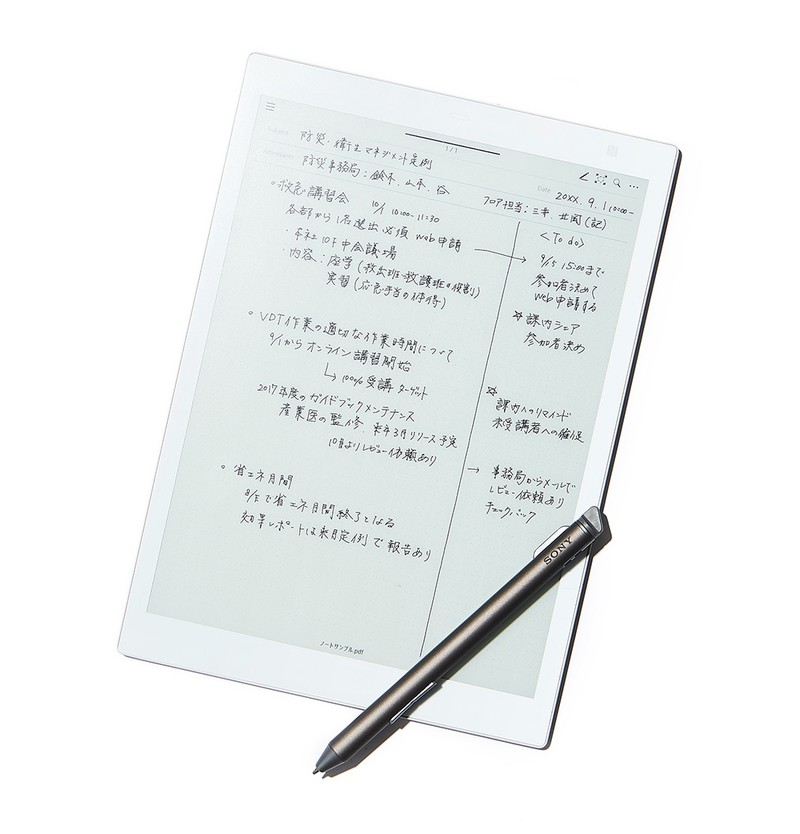 1/1
Subject 防災・衛生マネジメント定例
防災事務局:鈴木、山本、谷
Date 20XX. 9. 1 10:00-
フロア担当:三幸 北岡(記)
○救急講習会 10/1 10:00-11:30
各部から1名選出必須 web申請
・本社10F中会議場
・内容:座学(救出班・救護班の役割)
実習(応急手当の体得)
○VDT作業の適切な作業時間について
9/1からオンライン講習開始
↳100%受講 ターゲット
2017年度のガイドブックメンテナンス
産業医の監修. 来年3月リリース予定
10月よりレビュー依頼あり
○省エネ月間
8/Eで省エネ月間終了となる
効果レポートは来月定例で報告あり
<To do>
→9/15 15:00まで
参加者決めて
web申請する
☆課内シェア
参加者決め
☆
課内へのリマインド
未受講者への催促
→事務局からメールで
レビュー依頼あり
チェックバック
ノートサンプル.pdf
SONY